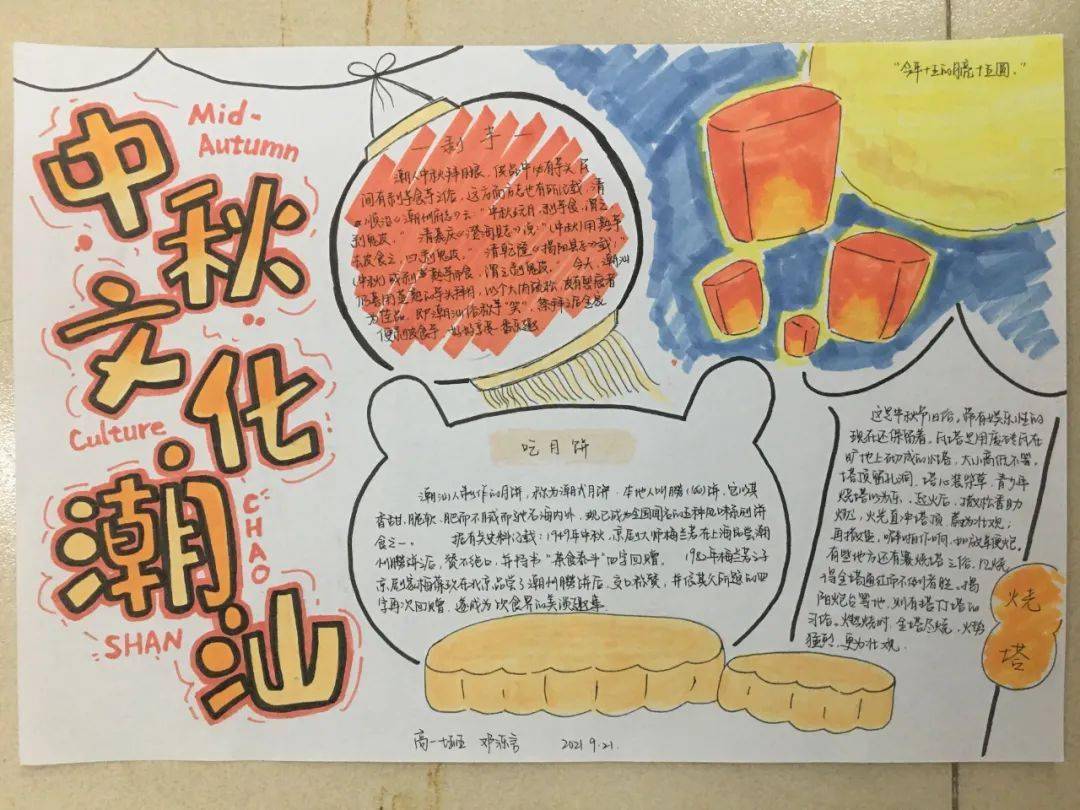 中秋文化潮汕
Mid-
Autumn
Culture
CHAO
SHAN
剥芋
潮人中秋拜月娘，供品中必有芋头，民
间有剥芋食芋之俗，这方面方志也有所记载，清
顺治《潮州府志》云："中秋玩月，剥芋食，谓之
剥鬼皮。"清嘉庆《澄海县志》说："(中秋)用熟芋
皮食之，曰剥鬼皮。"清乾隆《揭阳县志》载："
(中秋)或剥芋熟芋食，谓之剥鬼皮。"今天，潮汕
为佳品，即潮汕俗称芋"笑"，祭拜之后全家
便剥皮食芋
"今年十五的月亮十五圆。"
吃月饼
潮汕人制作的月饼，称为潮式月饼，本地人叫朥(la)饼，它以其
香甜、脆软、肥而不腻而驰名海内外，现已成为全国闻名的这种风味糕剂饼
食之一。 据有关史料记载：1949年中秋，京剧大师梅兰芳在上海品尝潮
州朥饼后，赞不绝口，并特书"茶食泰斗"四字回赠。 1982年梅兰芳之子
京剧名旦梅葆玖在北京品尝了潮州朥饼后，交口称赞，并信其父所题的四
字再次回赠，遂成为饮食界的美谈趣事
这是中秋节旧俗，带有娱乐性的
现在还保留着。瓦塔是用废砖瓦在
旷地上砌成的小塔，大小高低不等。
塔顶留孔洞，塔心装柴草，青少年
烧塔以为乐，起火后，撒松香助
燃，火光直冲塔顶，蔚为壮观；
再撒盐，噼啪作响，如放鞭炮。
有些地方还有赛烧塔之俗，以烧
得全塔通红而不倒者胜。揭
阳炮台等地，则有塔丁塔的
习俗。燃烧时，全塔尽烧，火势
猛烈，更为壮观。
烧
塔
高一 邓源言 2021.9.21.